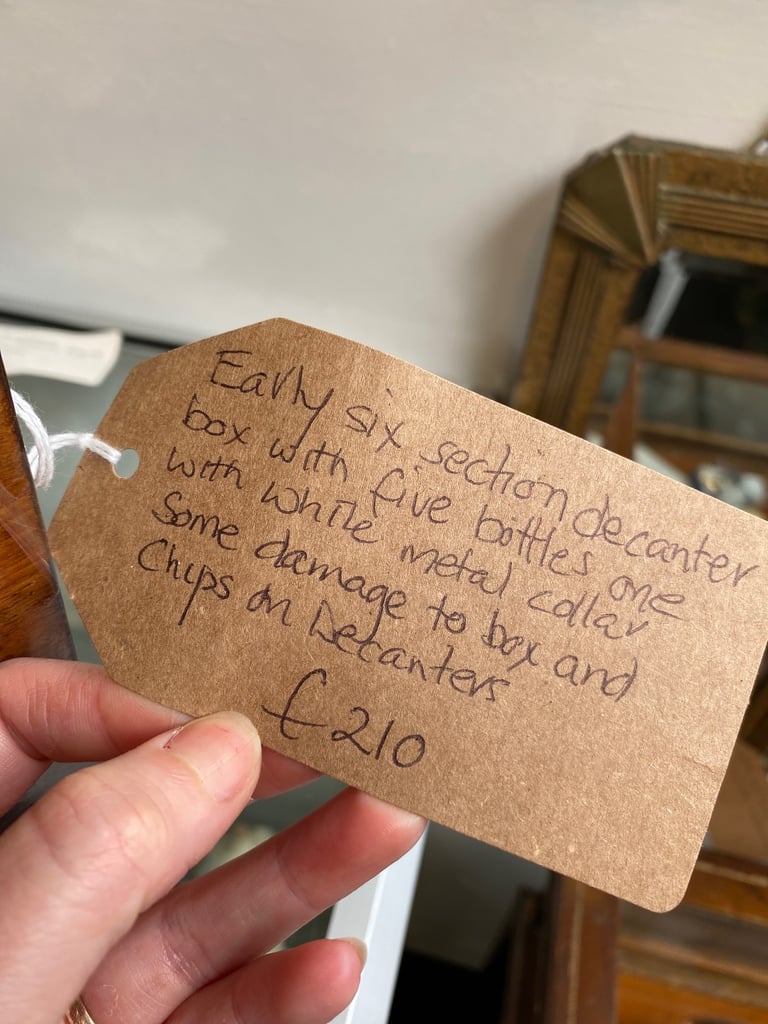 Early six section decanter
box with five bottles one
with white metal collar
Some damage to box and
Chips on Decanters
£210